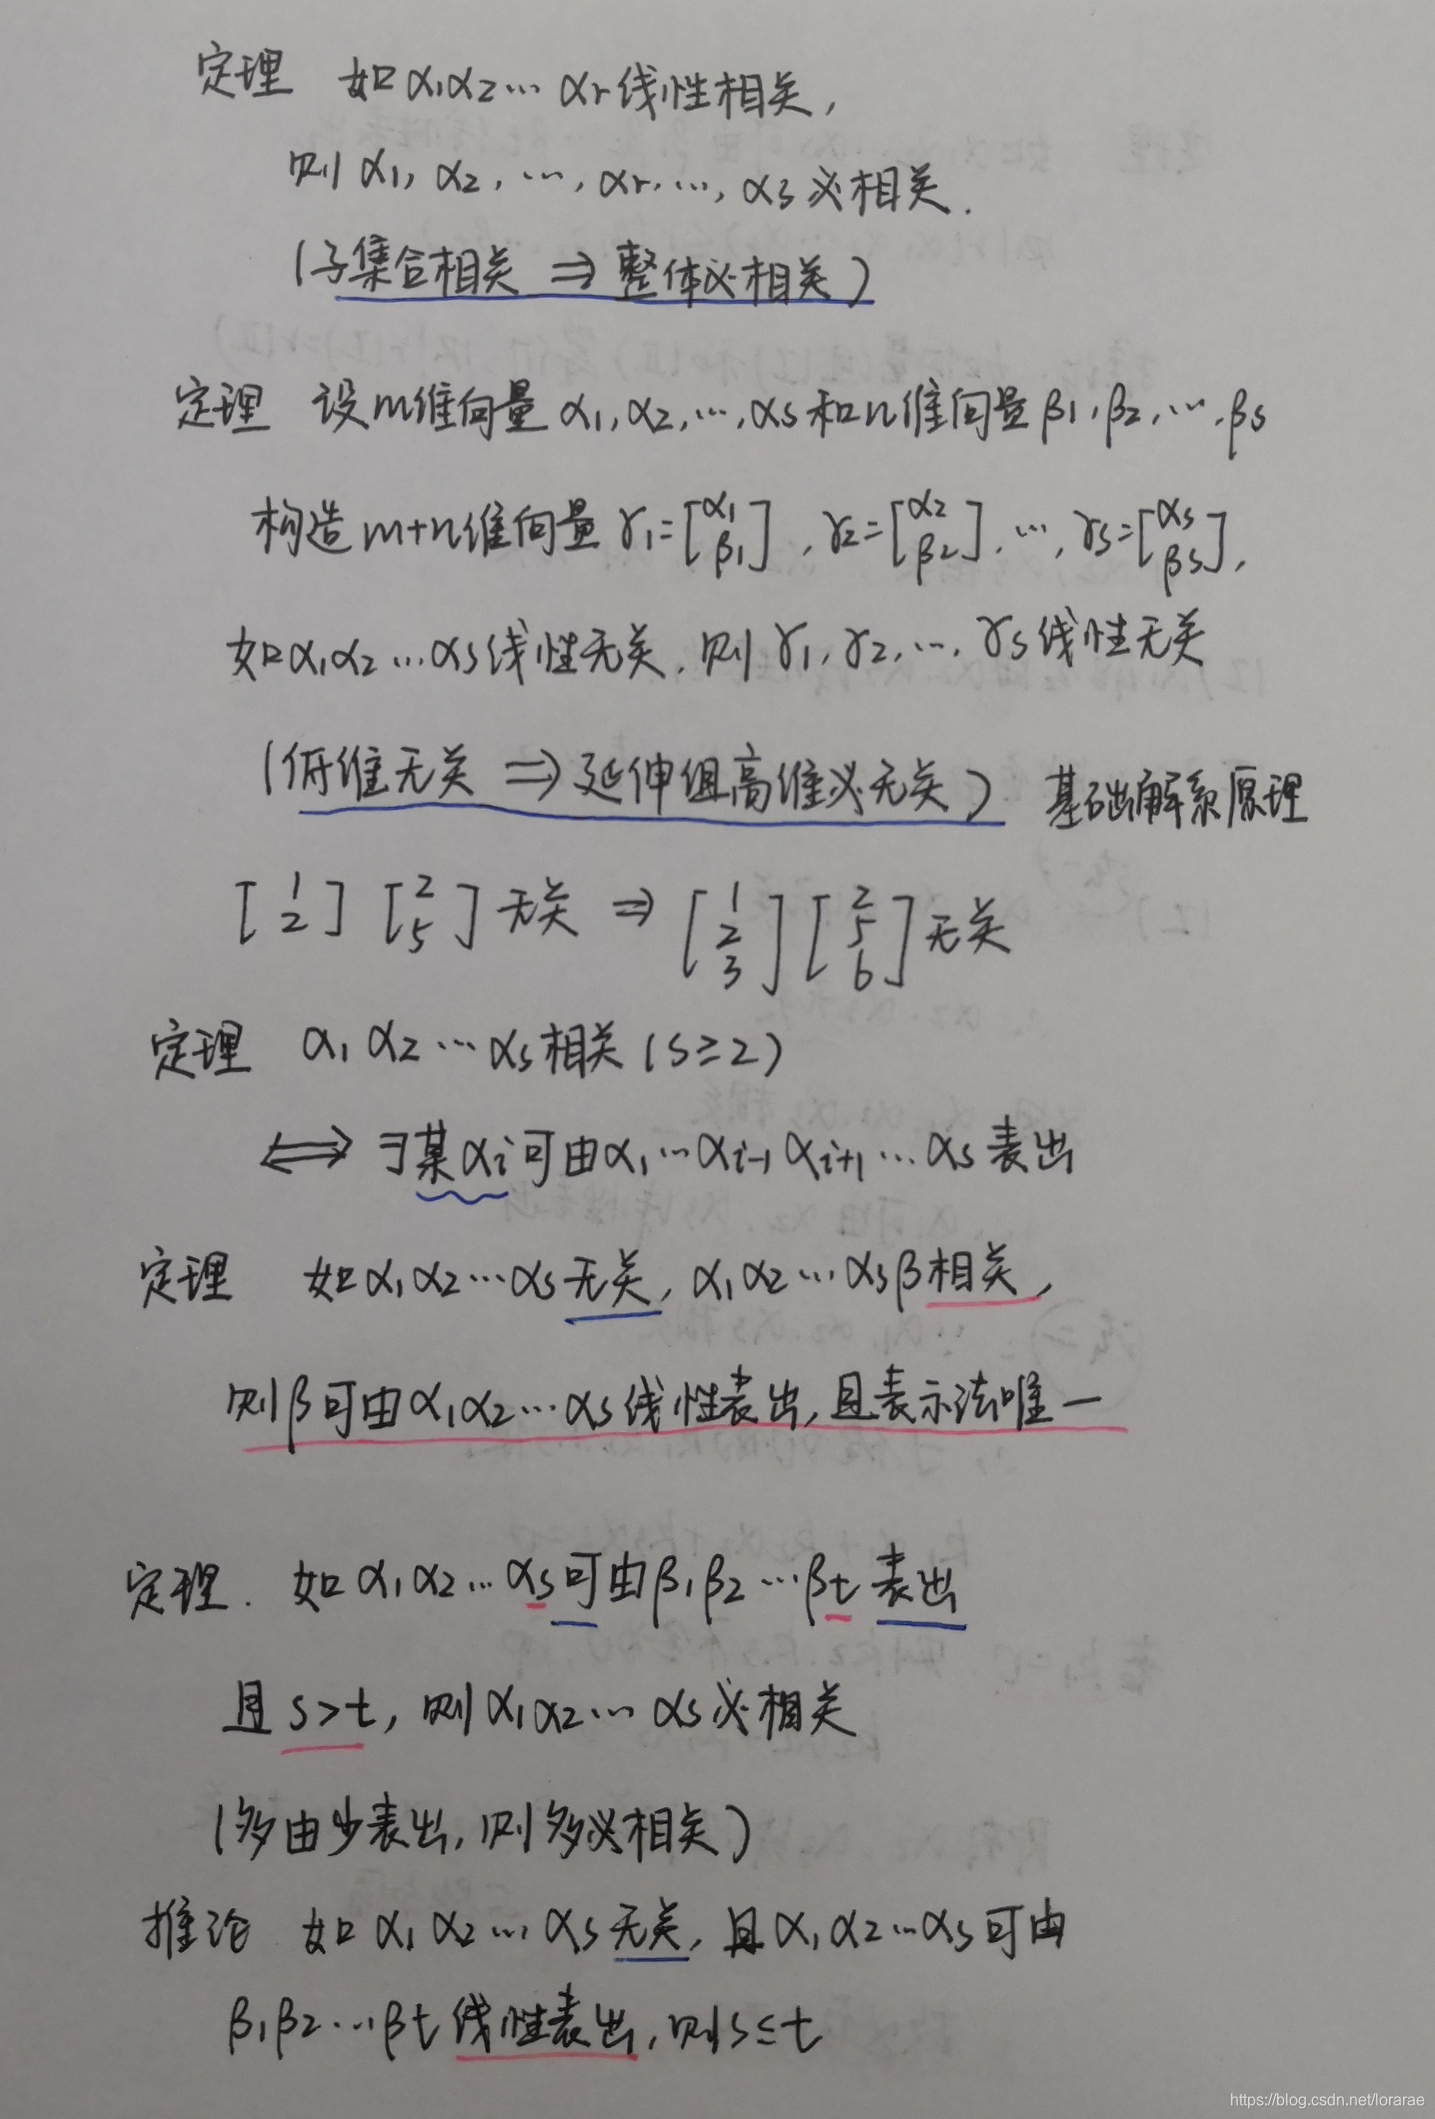 定理 如α₁α₂…αr线性相关,
则α₁, α₂, …, αr, …, αs必相关.
(子集合相关 ⇒ 整体必相关)
定理 设m维向量α₁, α₂, …, αs和n维向量β₁, β₂, …, βs
构造m+n维向量γ₁=[α₁ β₁], γ₂=[α₂ β₂], …, γs=[αs βs],
如α₁α₂…αs线性无关, 则γ₁, γ₂, …, γs线性无关
(低维无关 ⇒ 延伸组高维必无关) 基础解系原理
[1 2] [2 5] 无关 ⇒ [1 2 3] [2 5 6] 无关
定理 α₁ α₂ … αs相关 (s≥2)
⟺ ∃某αi可由α₁…αi-1 αi+1…αs表出
定理 如α₁α₂…αs无关, α₁α₂…αsβ相关,
则β可由α₁α₂…αs线性表出, 且表示法唯一
定理. 如α₁α₂…αs可由β₁β₂…βt表出
且s>t, 则α₁α₂…αs必相关
(多由少表出, 则多必相关)
推论 如α₁α₂…αs无关, 且α₁α₂…αs可由
β₁β₂…βt线性表出, 则s≤t
https://blog.csdn.net/lorarae